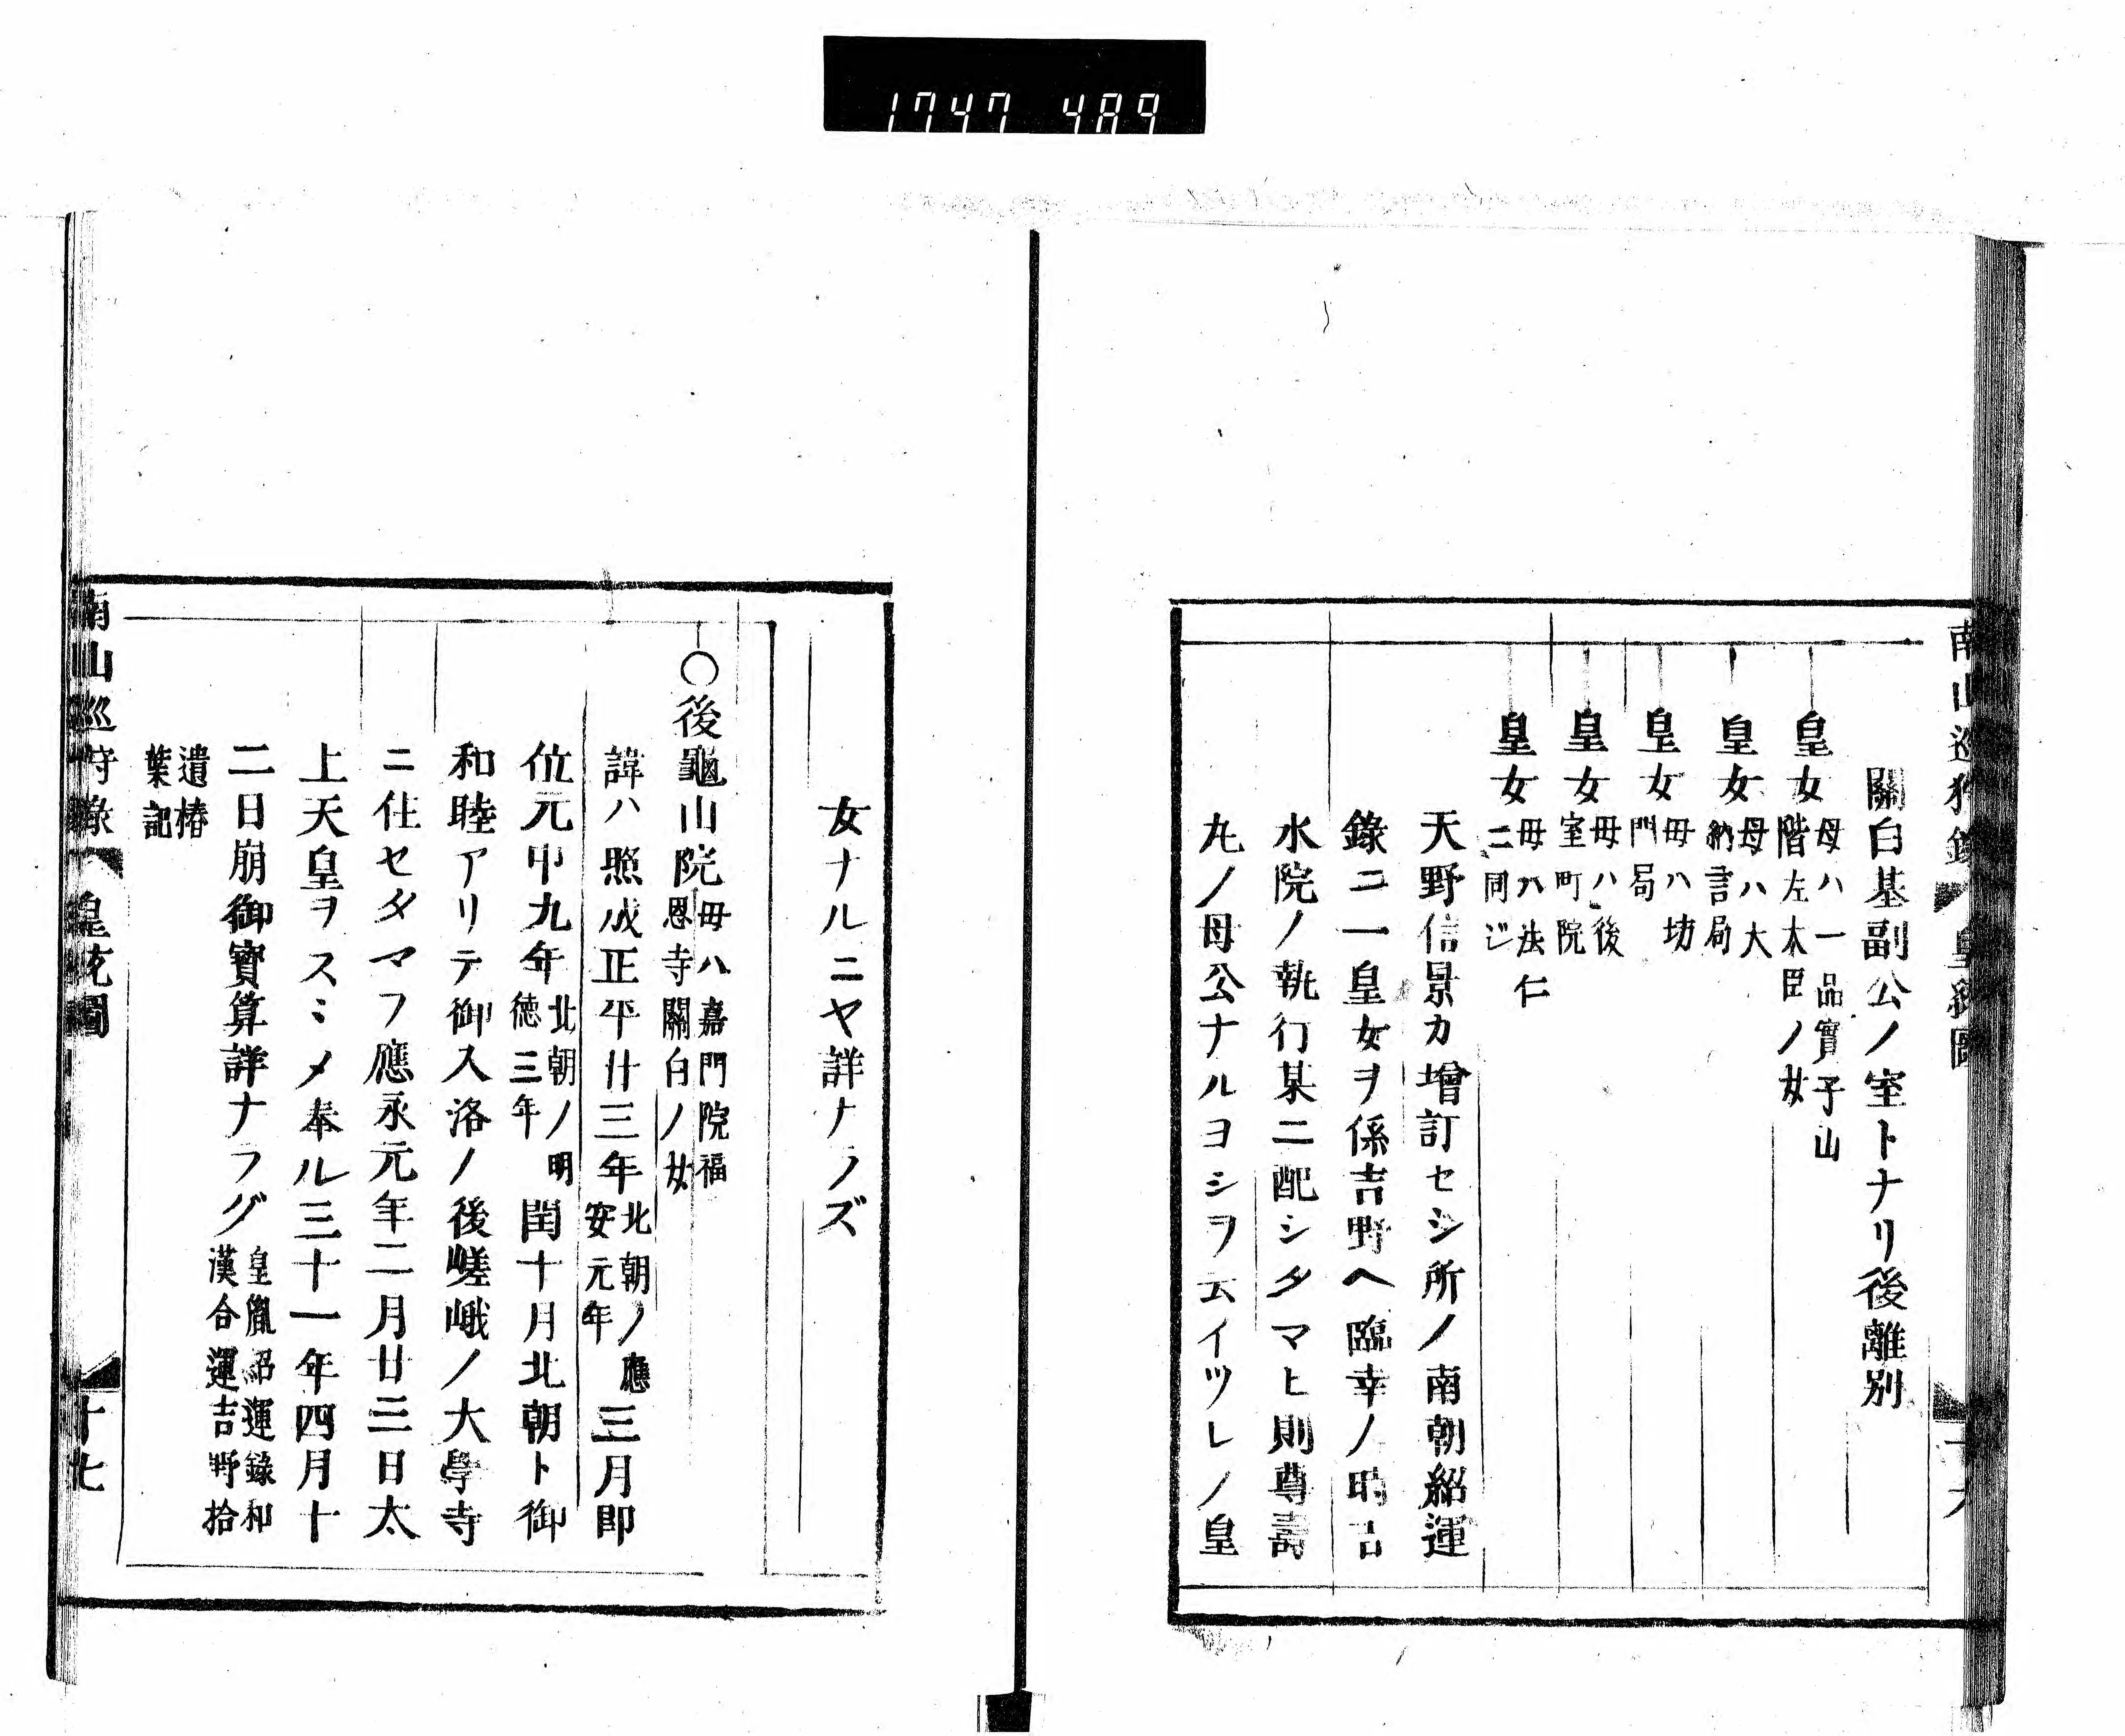 1747 489
南山巡狩錄
皇統圖
十六
關白基副公ノ室トナリ後離別
皇女
母ハ一品實子山
階左大臣ノ女
皇女
母ハ大
納言局
皇女
母ハ坊
門局
皇女
母ハ後
室町院
皇女
母ハ法仁
ニ同ジ
天野信景カ增訂セシ所ノ南朝紹運
錄ニ一皇女ヲ係吉野ヘ臨幸ノ時吉
水院ノ執行某ニ配シタマヒ則尊壽
丸ノ母公ナルヨシヲ云イツレノ皇
女ナルニヤ詳ナラズ
〇後龜山院
母ハ嘉門院福
恩寺關白ノ女
諱ハ熙成正平廿三年
北朝ノ應
安元年
三月即
位元中九年
北朝ノ明
德三年
閏十月北朝ト御
和睦アリテ御入洛ノ後嵯峨ノ大學寺
ニ住セタマフ應永元年二月廿三日太
上天皇ヲスミメ奉ル三十一年四月十
二日崩御寶算詳ナラズ
皇胤紹運錄和
漢合運吉野拾
遺椿
葉記
南山巡狩錄
皇統圖
十七